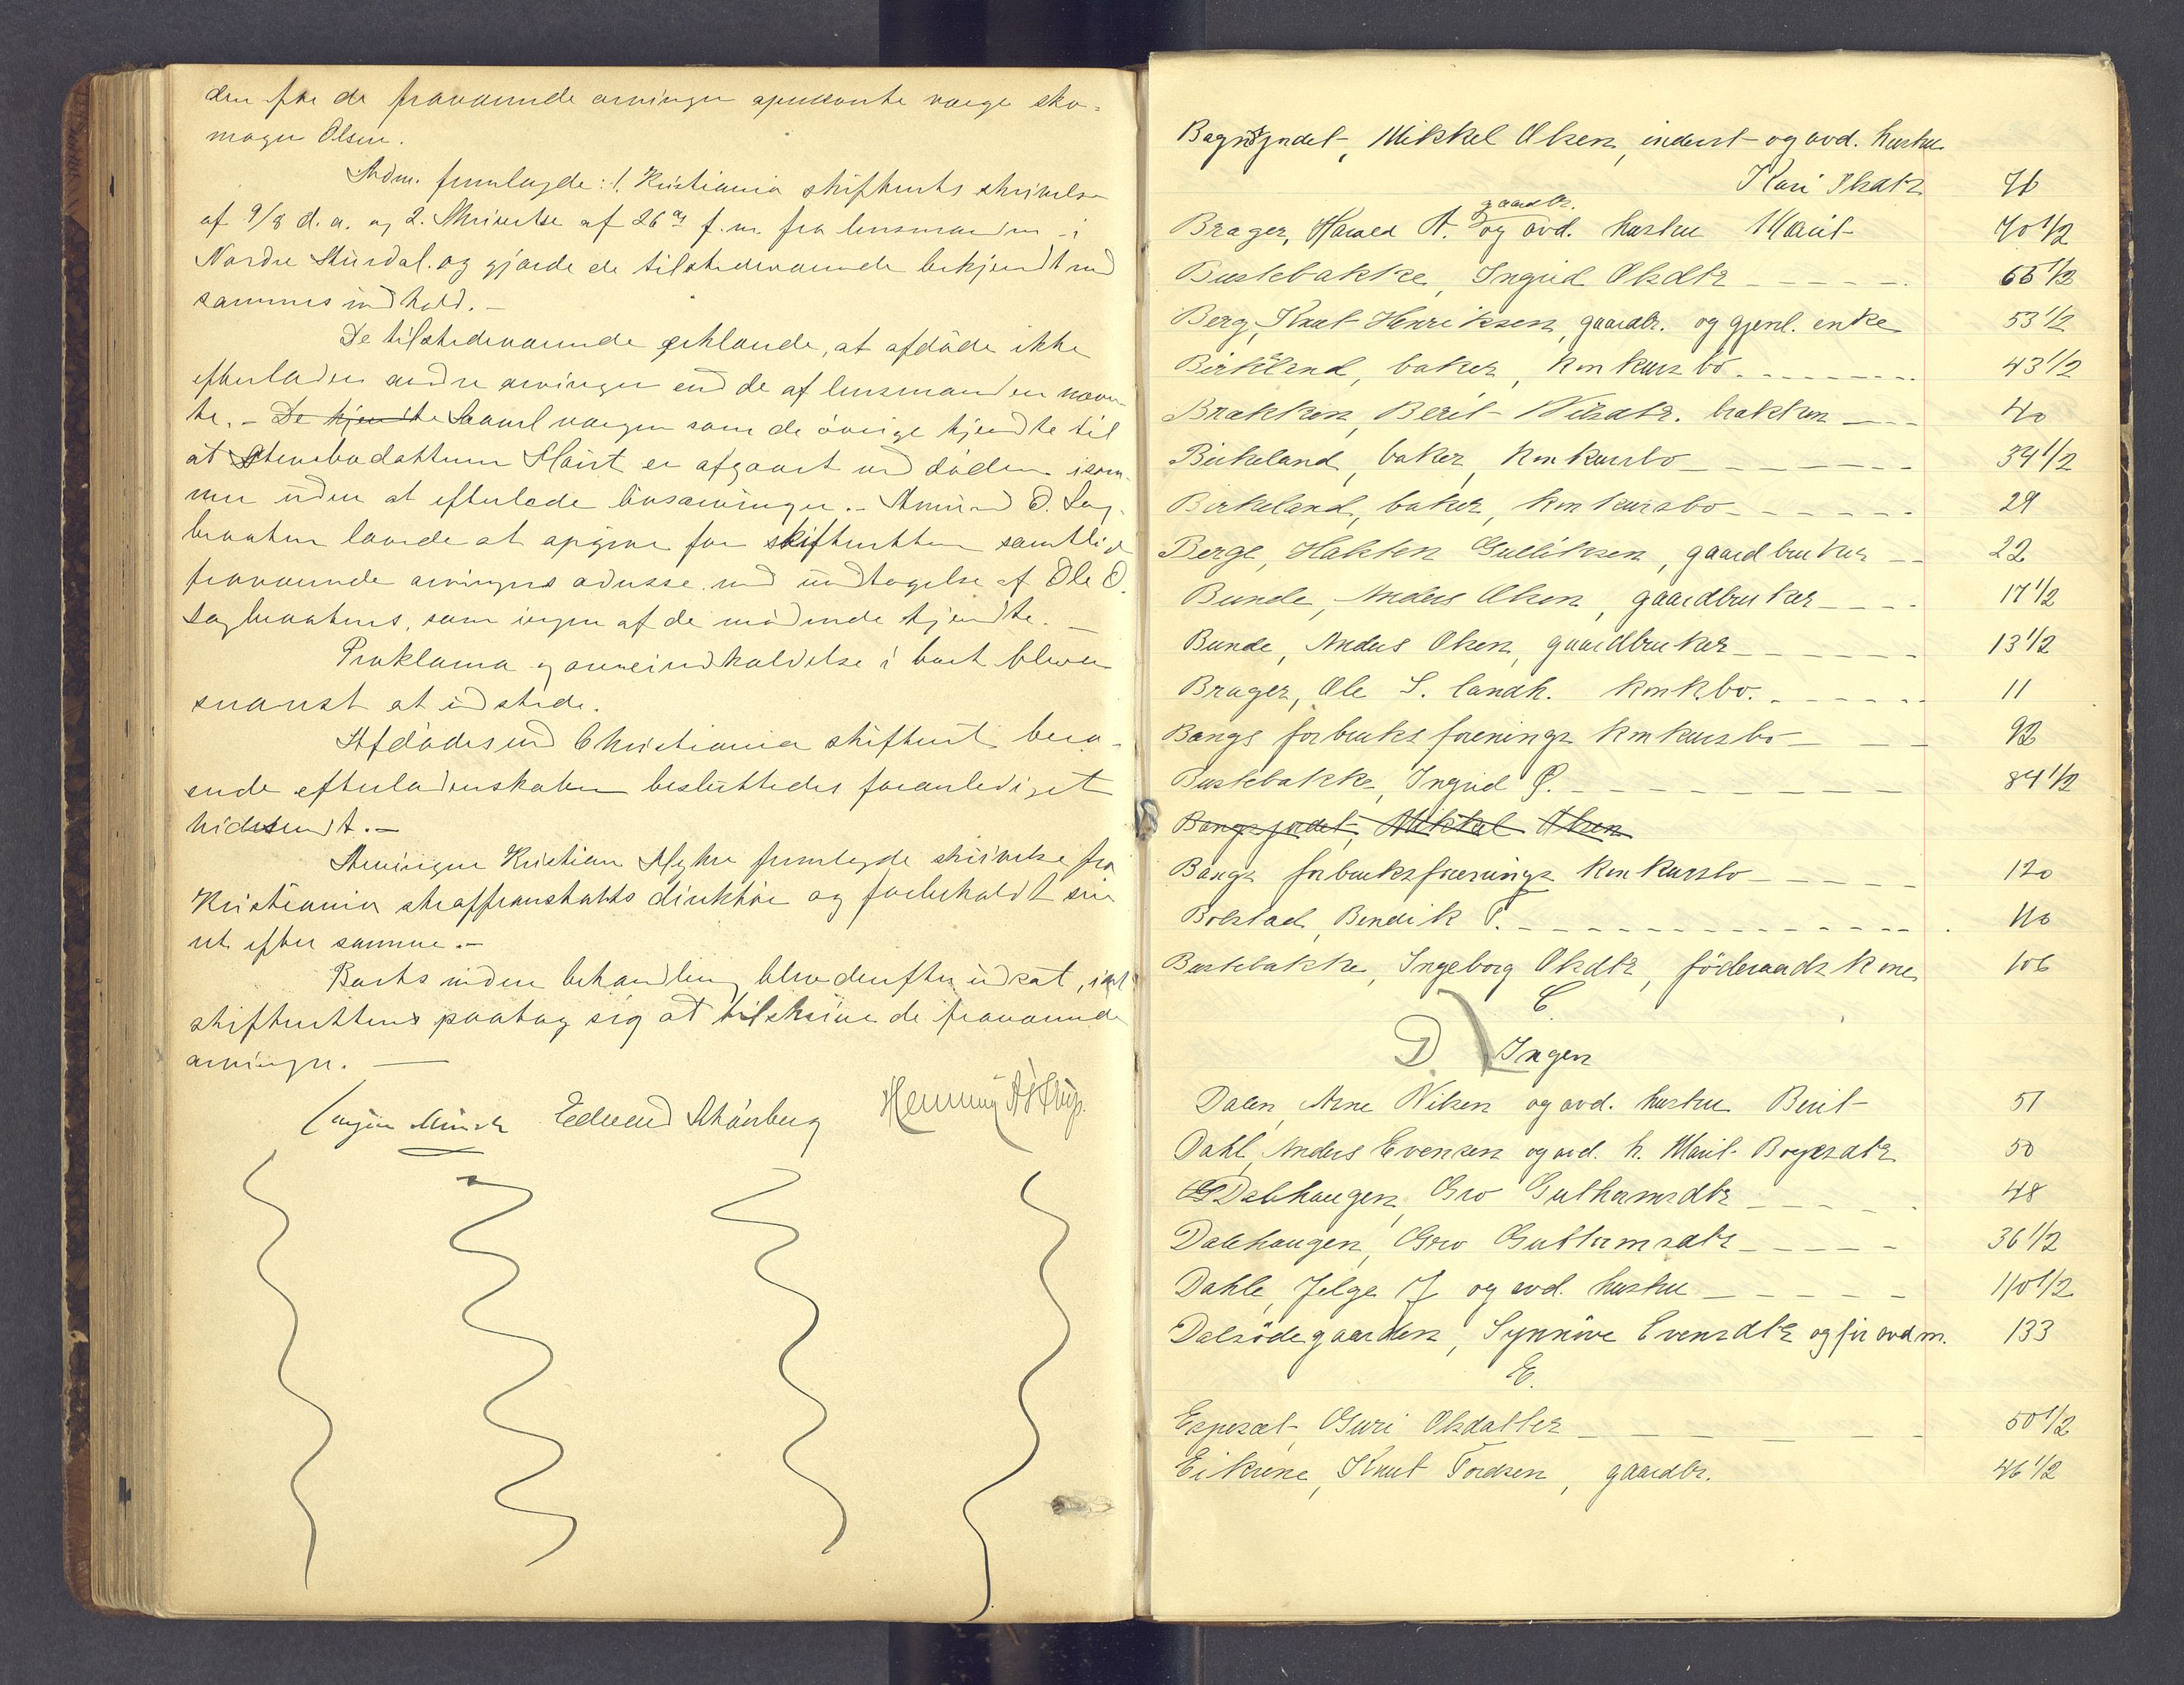 den for de fraværende arvinger opnævnte værge sko-
mager Olsen.
Adm. fremlagde: 1. Kristiania skifterets skrivelse
af 9/8 d.a. og 2. Skrivelse af 26de f.m. fra lensmanden i
Nordre Aurdal. og gjorde de tilstedeværende bekjendt med
sammes indhold.-
De tilstedeværende erklærede, at afdøde ikke
efterlader andre arvinger end de af lensmanden nævn-
te. - De kjendte Saavel værgen som de øvrige kjendte til
at Marit er afgaaet ved døden
uden at efterlade livsarvinger. - Amund O. Sag-
braaten lovede at opgive for skifteretten samtlige
fraværende arvingers adresse med undtagelse af Ole O.
Sagbraatens, som ingen af de mødende kjendte. -
Proklama og arveindkaldelse i boet blev
snarest at udstede.
Afdødes ved Christiania skifteret bero-
ende efterladenskaber besluttedes foranlediget
hidsendt. -
Arvingen Kristian Myhre fremlagde skrivelse fra
Kristiania straffeanstalts direktør og forbeholdt sin
ret efter samme. -
Boets videre behandling blev derefter udsat,
skifteretten paatog sig at tilskrive de fraværende
arvinger. -
Edvard Schönberg Henning
Bagnsjordet, Mikkel Olsen, inderst og avd. hustru
Kari 76
gaardbr.
Brager, Harald A. og avd. hustru Marit 70 1/2
Bustebakke, Ingrid Olsdtr - - - - - 65 1/2
Berg, Knut Henriksen, gaardbr. og gjenl. enke 53 1/2
Birkeland, baker, konkursbo - - - - - 43 1/2
Brakken, Berit Nilsdtr. brakken - - - 40
Birkeland, baker, konkursbo - - - - - 34 1/2
Birkeland, baker, konkursbo - - - - - 29
Berge, Halsten Gulliksen, gaardbruker - - 22
Bunde, Anders Olsen, gaardbruker - - - 17 1/2
Bunde, Anders Olsen, gaardbruker - - - - - 13 1/2
Brager, Ole S. landh. konk.bo. - - - - - 11
Bangs forbruksforenings konkursbo - - - 92
Bustebakke, Ingrid O. - - - - - - - 84 1/2
Bangsjordet, Mikkel Olsen
Bangs forbruksforenings konkursbo - - - - 120
Bolstad, Bendik T. - - - - - - - - - - 110
Bustebakke, Ingeborg Olsdtr, föderaadskone 106
C.
D. Ingen
Dalen, Arne Nilsen og avd. hustru Berit 51
Dahl, Anders Evensen og avd. h. Marit Boyesdtr 50
Dalehaugen, Gro Guthormsdtr - - - - - 48
Dalehaugen, Gro Guttormsdtr - - - - - 36 1/2
Dahle, Helge J. og avd. hustru - - - - - 110 1/2
Dalsödegaarden, Synnöve Evensdtr og för avd m. 133
E.
Espeset, Guri Olsdatter - - - - - - 50 1/2
Eikrene, Knut Tordsen, gaardbr. 46 1/2